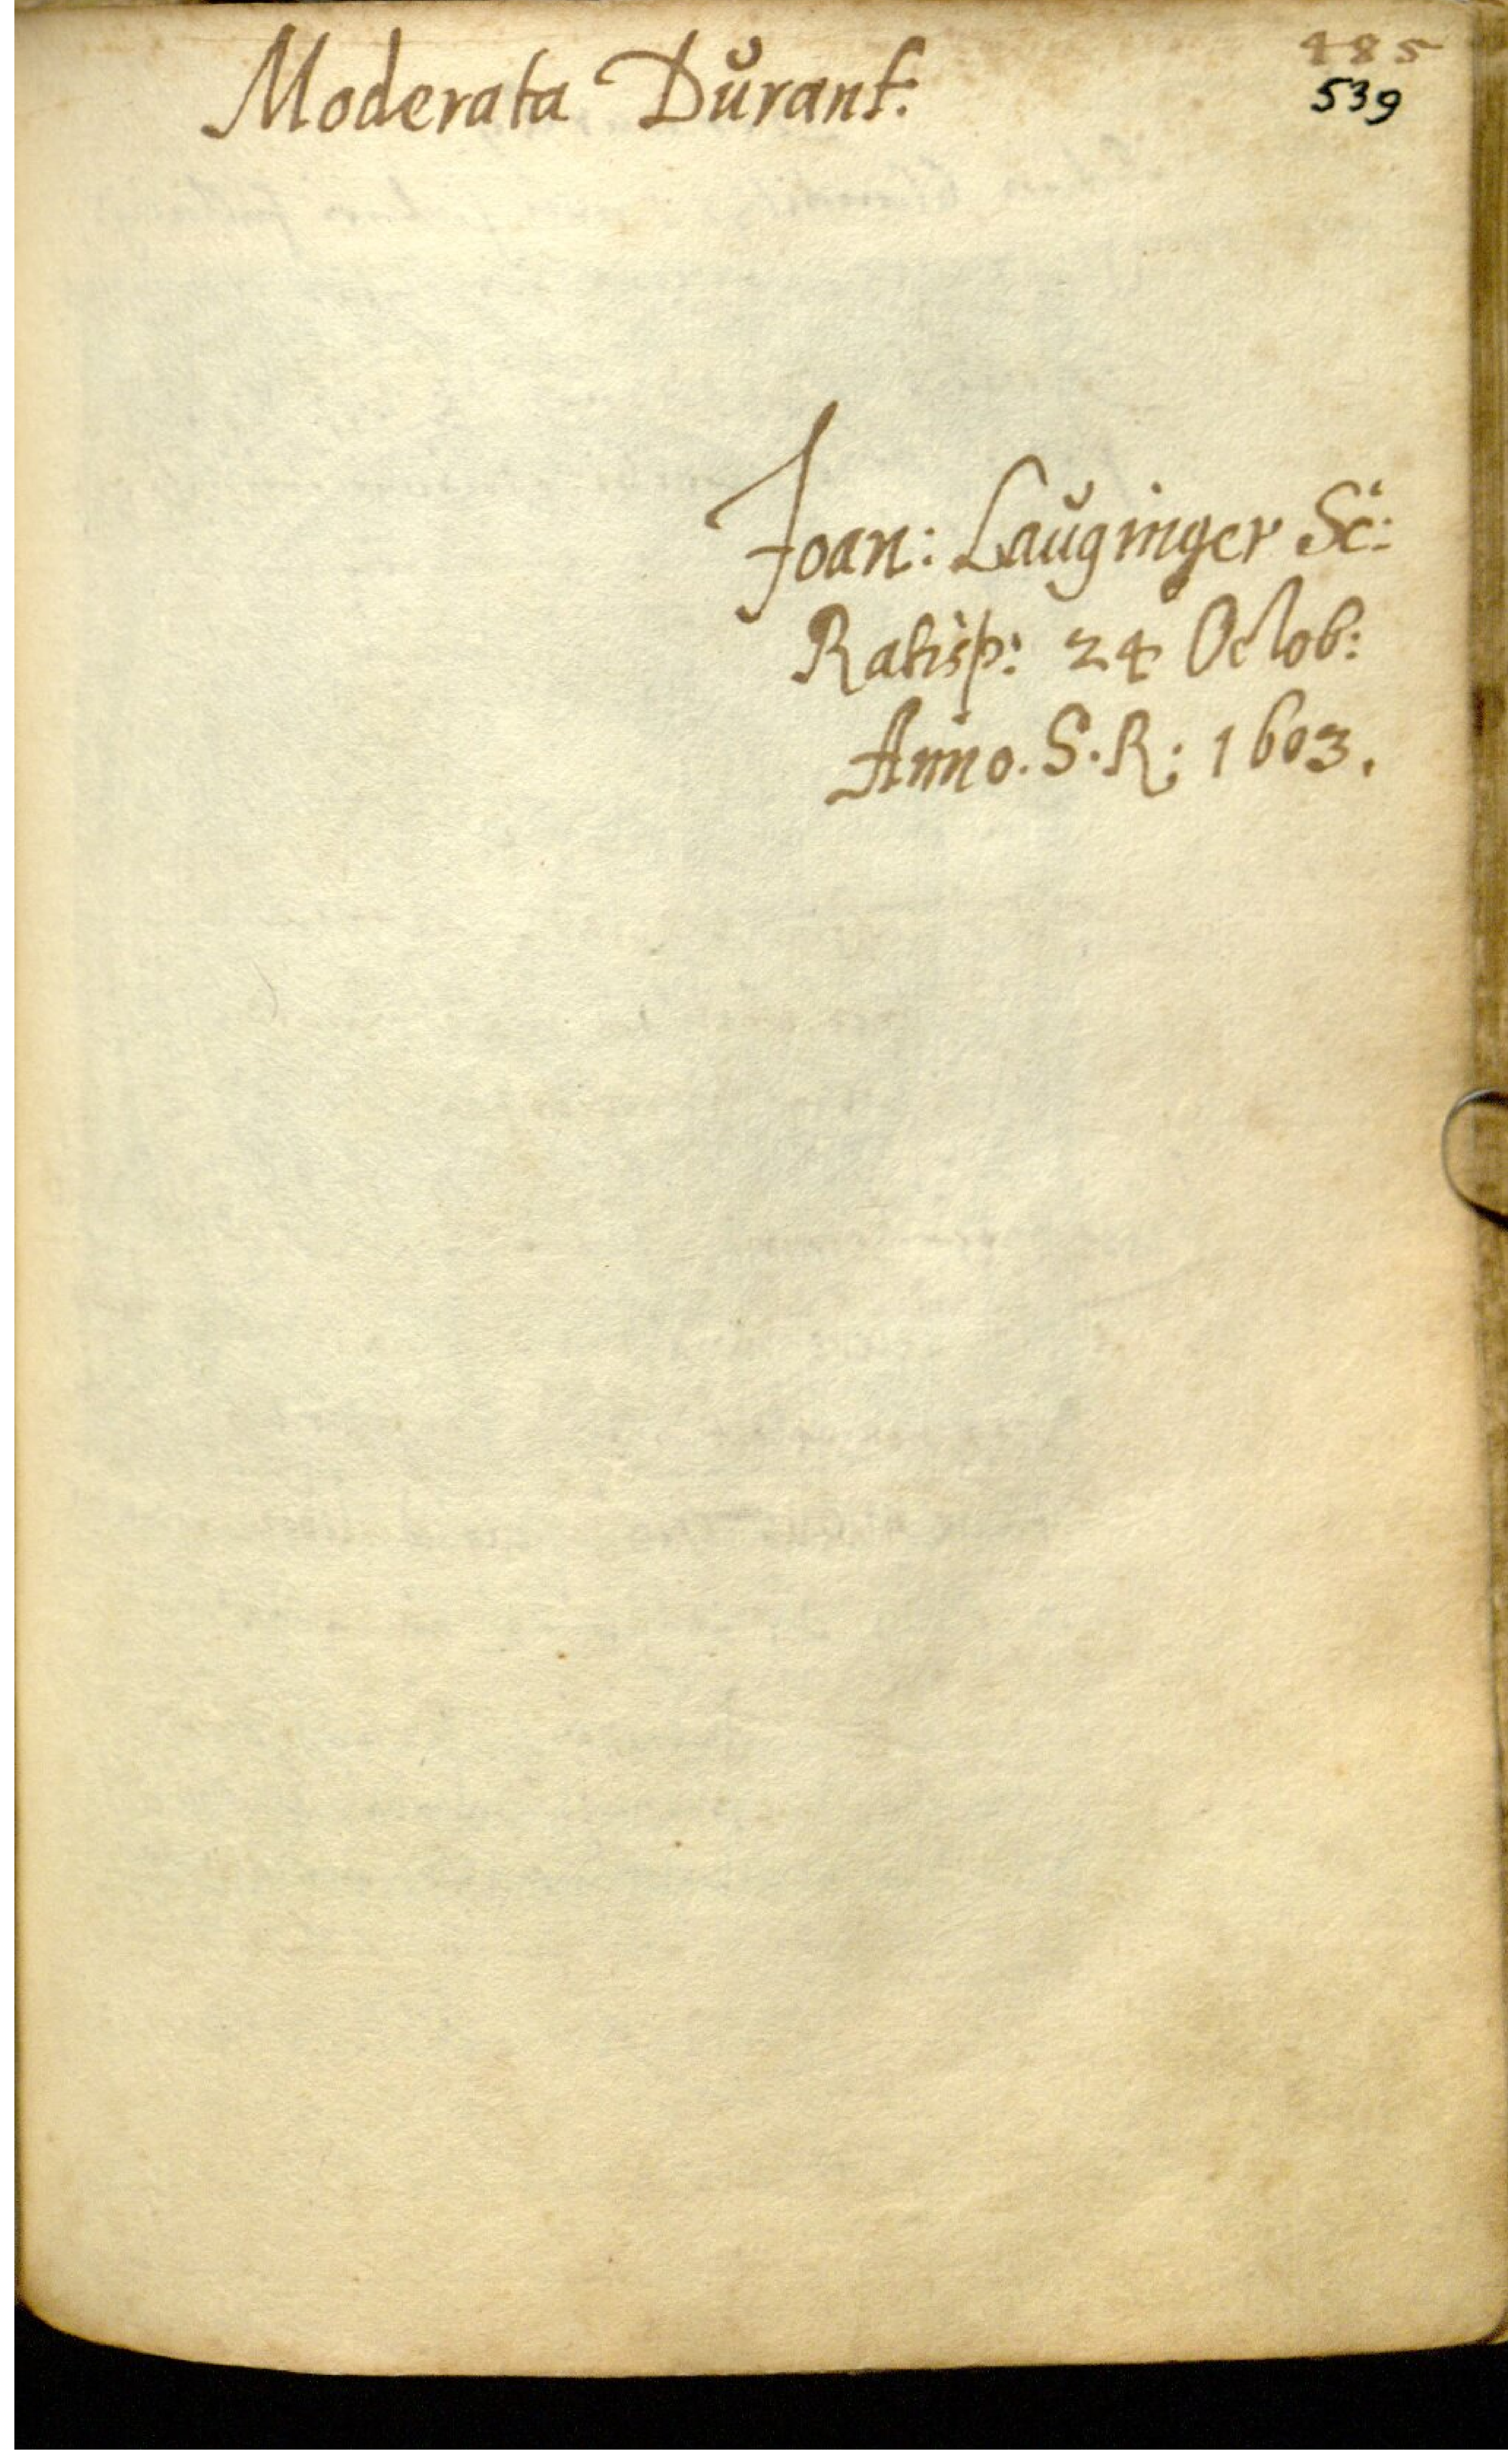 Moderata Dŭrant:
485
539
Joan: Laŭginger Sc:
Ratisp: 24 Octob:
Anno. S. R: 1603.